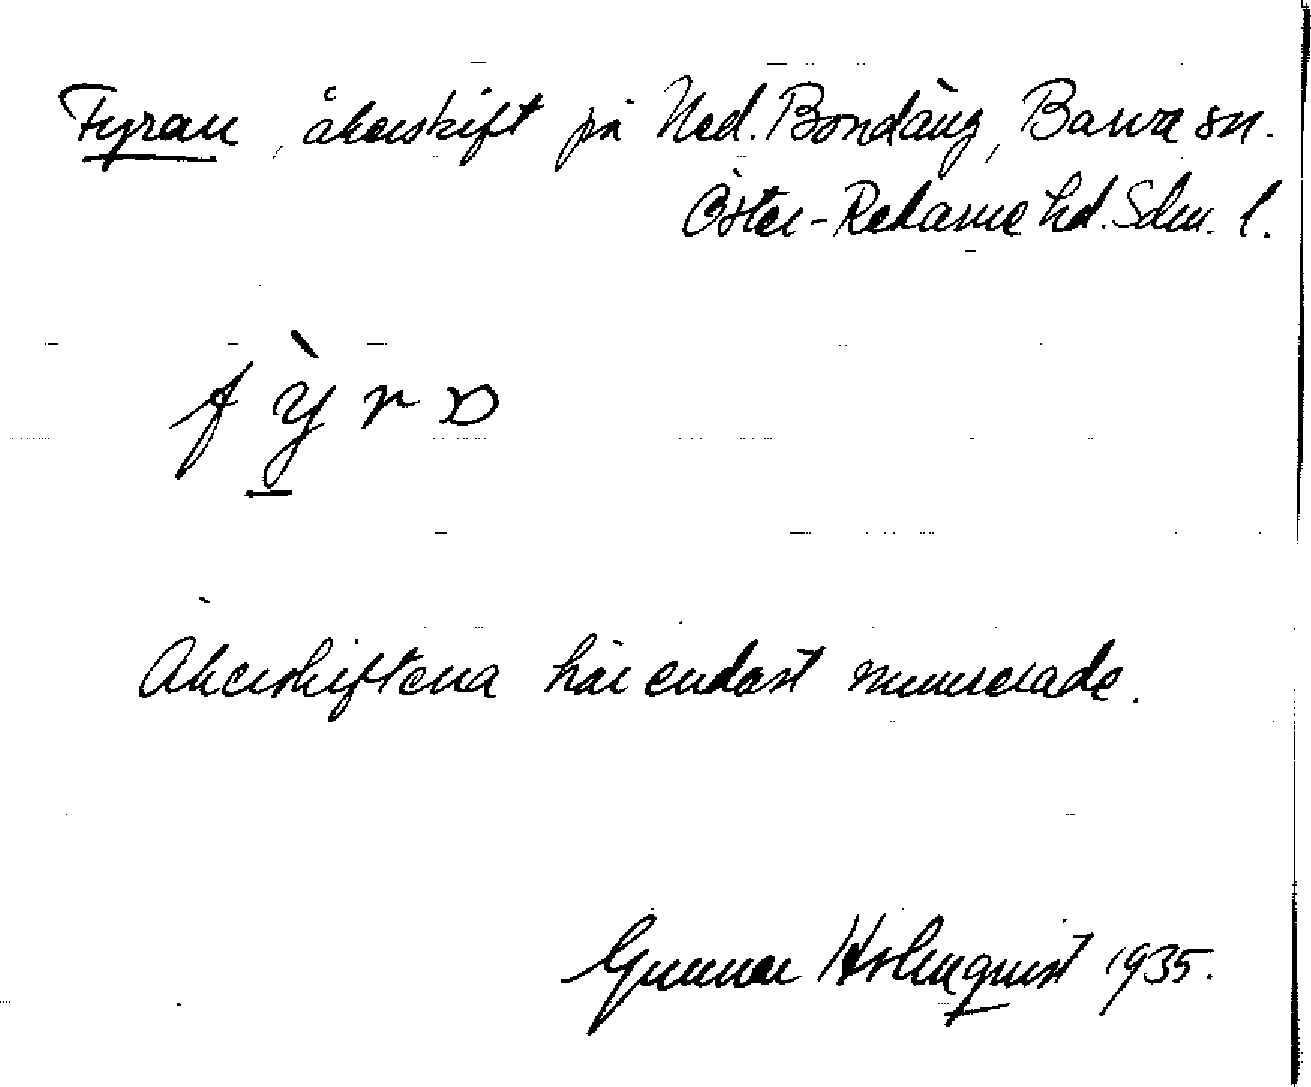 Fyran, åkerskift på Ned. Bondäng, Barva sn.
Öster-Rekarne hd. Sdm. l.
f ỳ r ɷ
Åkerskiftena här endast numrerade.
Gunnar Holmquist 1935.